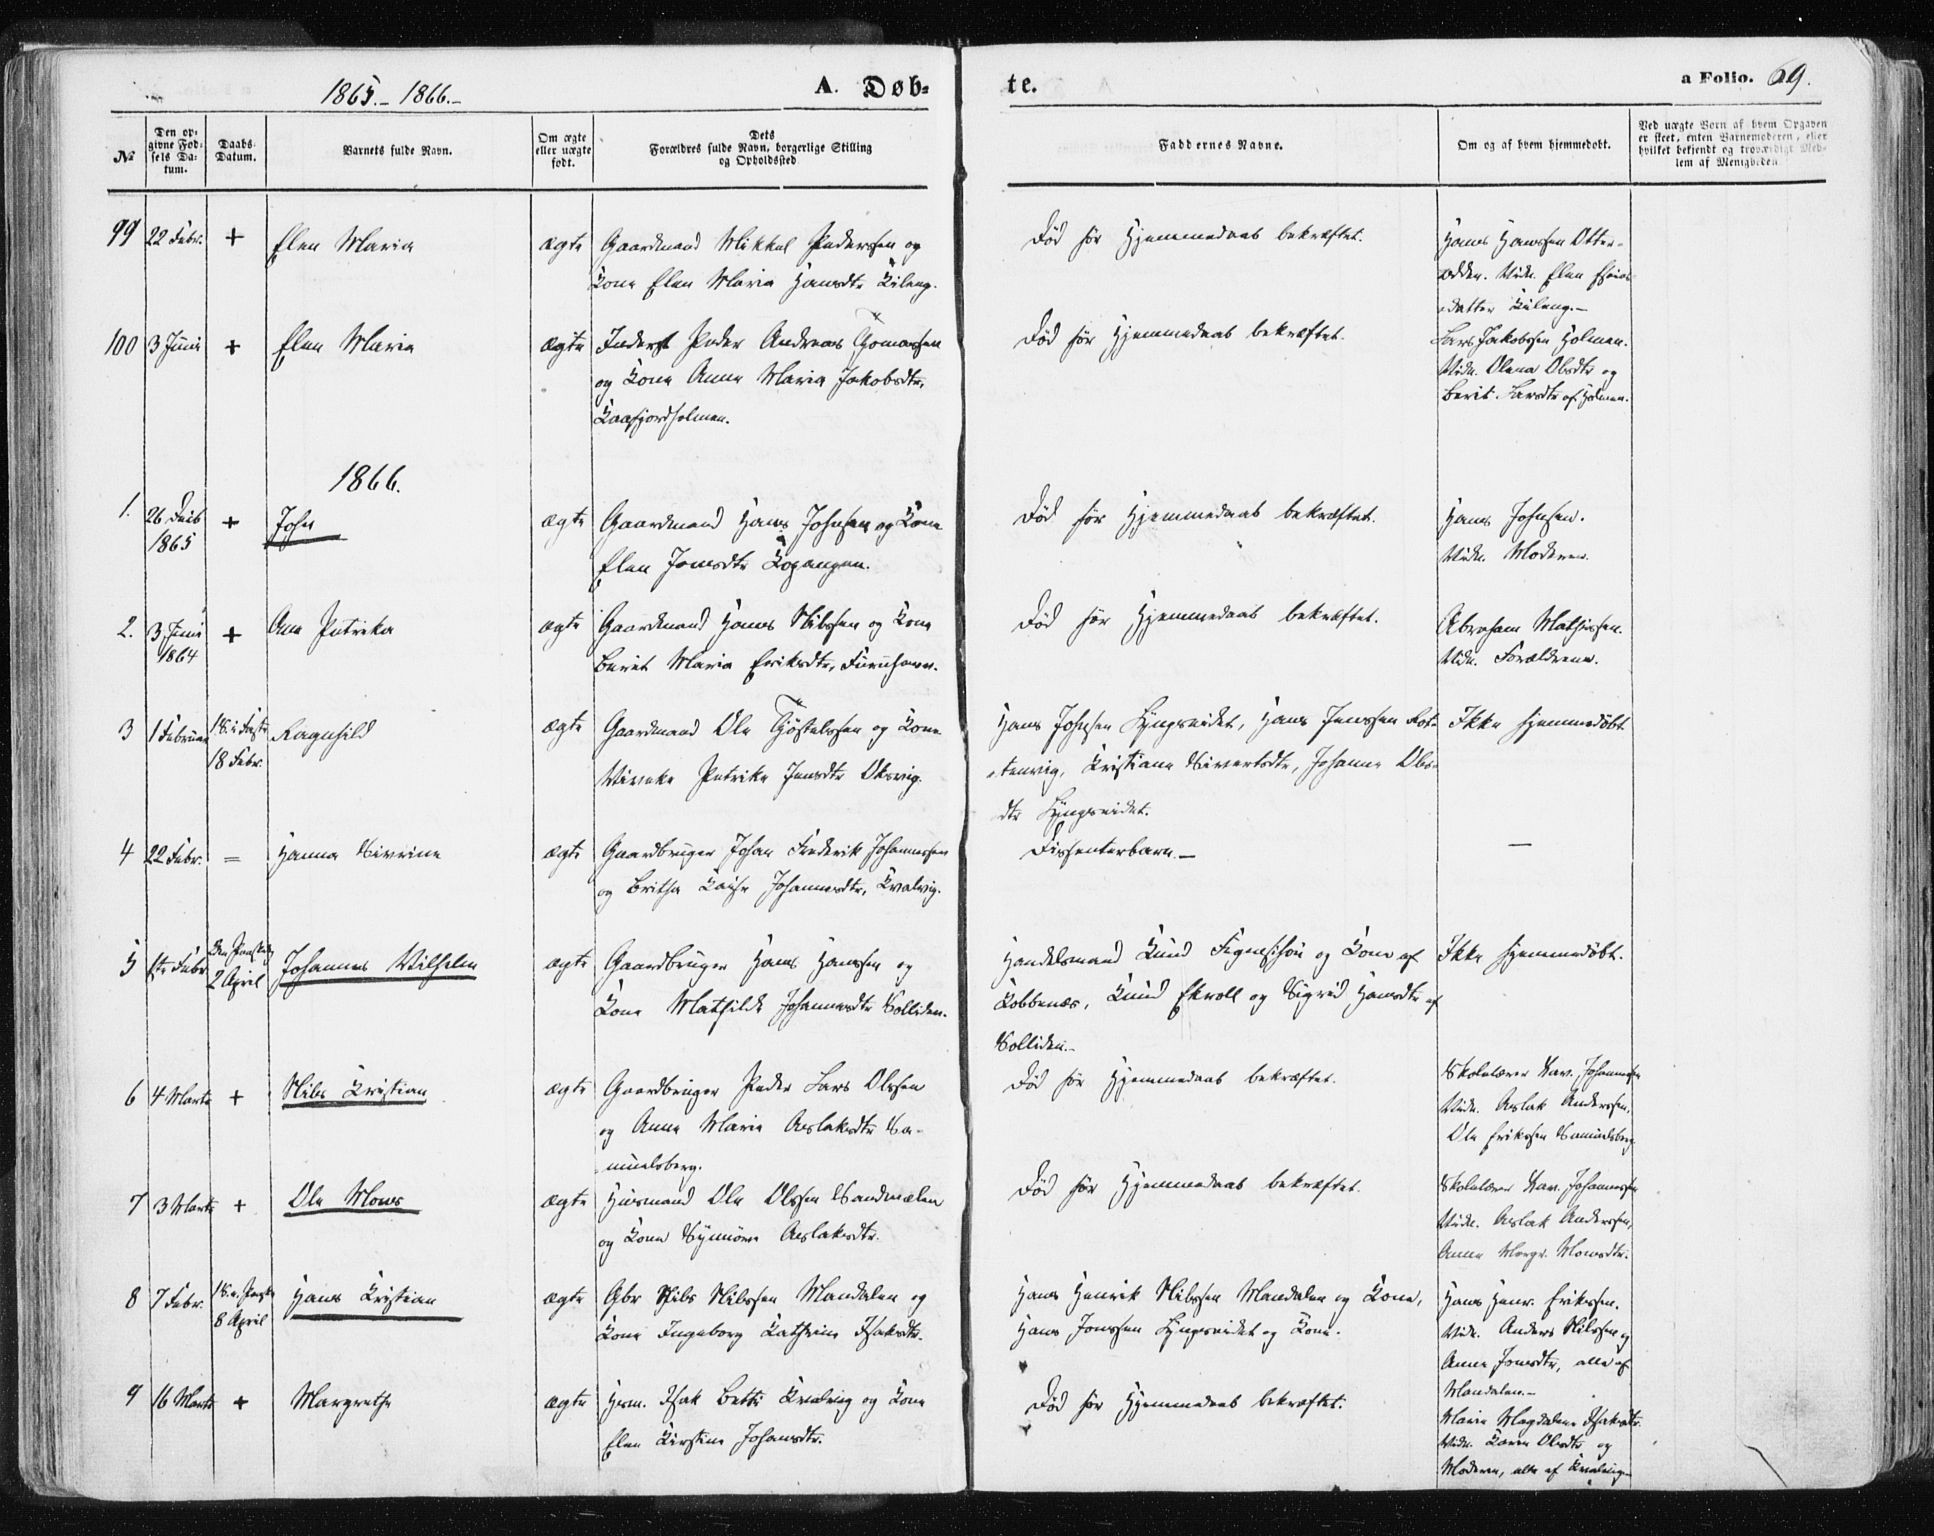 1865.- 1866.-
A. Døb-
te.
a Folio. 69.
№
Den opgivne Fødsels Datum.
Daabs Datum.
Barnets fulde Navn.
Om ægte eller uægte født.
Dets Forældres fulde Navn, borgerlige Stilling og Opholdssted
Faddernes Navne.
Om og af hvem hjemmedøbt.
Ved uægte Børn af hvem Opgaven er skeet, enten Barnemoderen, eller hvilket bekjendt og troværdigt Medlem af Menigheden
99 22 Febr. + Elen Maria ægte Gaardmand Mikkel Pedersen og
Kone Elen Maria Hansdtr Kileng.
Død før Hjemmedaab bekræftet.
Hans Hanssen Otter-
odden. Vidn. Elen
datter Kileng.-
100 3 Juni + Elen Maria ægte Inderst Peder Andreas Thomassen
og Kone Anne Maria Jakobsdtr,
Kaafjordholmen.
Død før Hjemmedaab bekræftet.
Lars Jakobssen Holmen.
Vidn. Olena Olsdtr og
Berit Larsdtr af Holmen.
1866.
1. 26 1865 + John ægte Gaardmand Hans Johnsen og Kone
Elen Jonsdtr
Død før Hjemmedaab bekræftet.
Hans Johnsen.
Vidn. Moderen.
2. 3 Juni 1864 + Ane Petrika ægte Gaardmand Hans Nilssen og Kone
Berit Maria Eriksdtr, Furuhavn.
Død før Hjemmedaab bekræftet.
Abraham Mathissen.
Vidn. Forældrene.
3 1 Februar 1 S. i Faste 18 Febr. Ragnhild ægte Gaardmand Ole Tjøstelssen og Kone
Viveke Petrike Jensdtr Oksvig.
Hans Johnsen Lyngseidet, Hans Jenssen Rot-
tenvig, Kristiane Sivertsdtr, Johanne Ols-
dtr Lyngseidet.
Ikke hjemmedøbt
4 22 Febr. = Hanna Sivrine ægte Gaardbruger Johan Frederik Johannessen
og Britha Kajse Johannesdtr, Kvalvig.
Dissenterbarn.-
—
5 1ste Febr. 2den Paaskedg 2 April Johannes Vilhelm ægte Gaardbruger Hans Hanssen og
Kone Mathilde Johannesdtr Solliden.
Handelsmand Knud Figenschou og Kone af
Kobbenæs, Knud Ekroll og Sigrid Hansdtr af
Solliden.-
Ikke hjemmedøbt.
6 4 Marts + Nils Kristian ægte Gaardbruger Peder Lars Olssen
og Anne Marie Aslaksdtr Sa-
muelsberg.
Død før Hjemmedaab bekræftet.
Skolelærer Joh­annessen
Vidn. Aslak Anderssen,
Ole Erikssen Samuelsberg
7 3 Marts + Ole Mons ægte Husmand Ole Olssen Sandmælen
og Kone Synnøve Aslaksdtr.
Død før Hjemmedaab bekræftet.
Skolelærer Johannessen
Vidn. Aslak Anderssen,
Anne Margr. Monsdtr.
8 7 Febr. 1 S. e. Paaske 8 April Hans Kristian ægte Gbr Nils Nilssen Mandalen og
Kone Ingeborg Kathrine Isaksdtr.
Hans Henrik Nilssen Mandalen og Kone,
Hans Jonssen Lyngseidet og Kone.
Hans Henr. Erikssen.
Vidn. Anders Nilssen og
Anne Jonsdtr, alle af
Mandalen.-
9 16 Marts + Margrethe ægte Husm. Isak Kvalvig og Kone
Elen Kirstine Johansdtr.
Død før Hjemmedaab bekræftet.
Marie Magdalene Isaksdtr.
Vidn. Karen Olsdtr og
Moderen, alle af Kvalvig.-